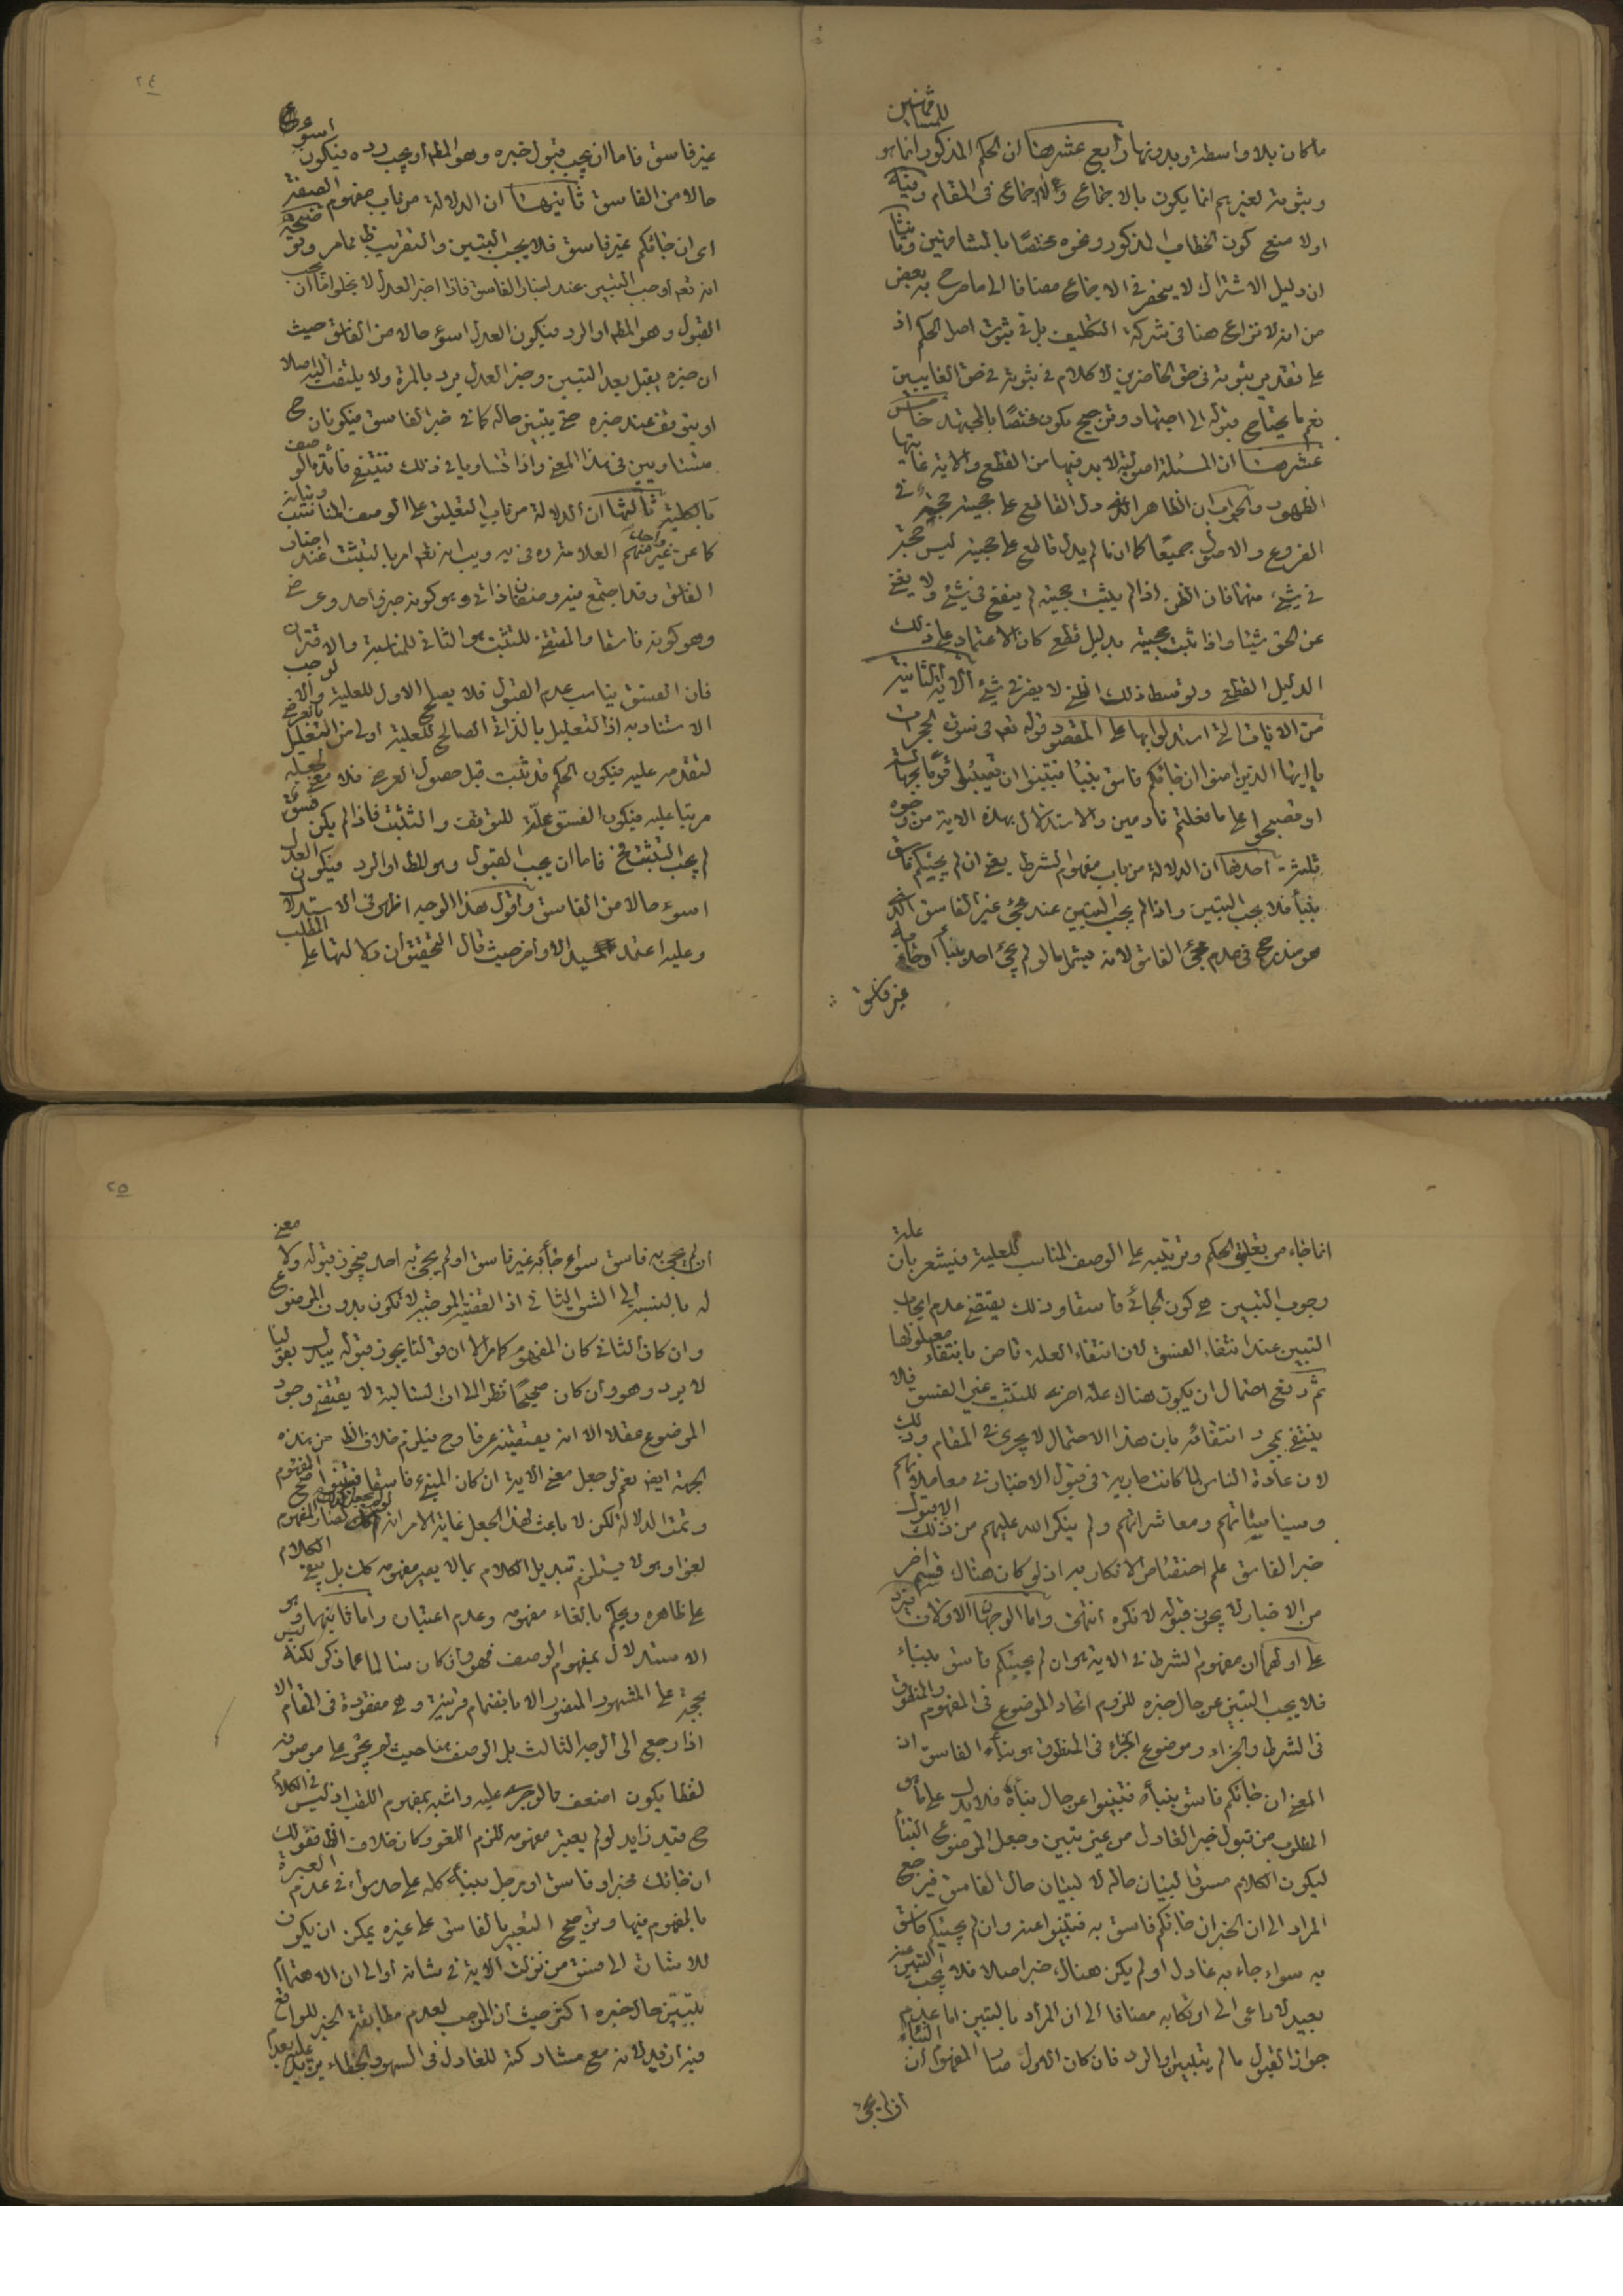 ما كان بلا واسطة وبدونها رابع عشرها ان الحكم المذكور انما هو للمشافهين
وثبوته لغيرهم انما يكون بالاجماع ولا اجماع فى المقام وفيه
اولا منع كون الخطاب المذكور ونحوه مختصًا بالمشافهين وثانيا
ان دليل الاشتراك لا ينحصر فى الاجماع مضافا الى ما صرح به بعض
من انه لا نزاع هنا فى شركة التكليف بل فى ثبوت اصل الحكم اذ
على تقدير ثبوته فى حق الحاضرين لا كلام فى ثبوته فى حق الغايبين
نعم ما يحتاج قبوله الى اجتهاد وترجيح يكون مختصًا بالمجتهد خامس
عشرها ان المسئلة اصولية لا بد فيها من القطع والاية غايتها
الظهور والجواب ان الظاهر الذى دل القاطع على حجيته حجة فى
الفروع والاصول جميعًا كما ان ما لم يدل قاطع على حجيته ليس حجة
فى شىء منهما فان الظن اذا لم يثبت حجيته لم ينفع فى شىء ولا يغنى
عن الحق شيئا واذا ثبت حجيته بدليل قطعى كان الاعتماد على ذلك
الدليل القطعى وتوسط ذلك الظنى لا يضر فى شىء الاية الثانية
من الايات التى استدلوا بها على المقصود قوله تعه فى سورة الحجرات
يا ايها الذين امنوا ان جائكم فاسق بنبأ فتبينوا ان تصيبوا قومًا بجهالة
او فتصبحوا على ما فعلتم نادمين والاستدلال بهذه الاية من وجوه
ثلثة احدها ان الدلالة من باب مفهوم الشرط يعنى ان لم يجيئكم فاسق
بنبأ فلا يجب التبين واذا لم يجب التبين عند مجىء غير الفاسق الذى
هو مندرج فى عدم مجىء الفاسق لانه يشمل ما لو لم يجىء احد بنبأ او جاء به
غير فاسق
٢٤
غير فاسق فاما ان يجب قبول خبره وهو المط او يجب رده فيكون اسوء
حالا من الفاسق ثانيها ان الدلالة من باب مفهوم الصفة
اى ان جائكم غير فاسق فلا يجب التبين والتقريب ما مر وتوضيحه
انه تعه اوجب التبين عند اخبار الفاسق فاذا اخبر العدل لا يخلو اما ان يجب
القبول وهو المط او الرد فيكون العدل اسوء حالا من الفاسق حيث
ان خبره يقبل بعد التبين وخبر العدل يرد بالمرة ولا يلتفت اليه اصلا
او يتوقف عند خبره حتى يتبين حاله كما فى خبر الفاسق فيكونان ح
متساويين فى هذا المعنى واذا تساويا فى ذلك فتنتفى فائدة الوصف
بالكلية ثالثها ان الدلالة من باب التعليق على الوصف المناسب وبيانه
كما عن غير واحد منهم العلامة ره فى يه ويب انه تعه امر بالتثبت عند اخبار
الفاسق وقد اجتمع فيه وصفان ذاتى وهو كونه خبر واحد وعرضى
وهو كونه فاسقا والمقتضى للتثبت هو الثانى للمناسبة والاقتران
فان الفسق يناسب عدم القبول فلا يصلح الاول للعلية والا لوجب
الاستناد به اذ التعليل بالذاتى الصالح للعلية اولى من التعليل بالعرضى
لتقدمه عليه فيكون الحكم قد ثبت قبل حصول العرضى فلا معنى لجعله
مرتبا عليه فيكون الفسق علّة للتوقف والتثبت فاذا لم يكن فسق
لم يجب التثبت فح فاما ان يجب القبول وهو المط او الرد فيكون العدل
اسوء حالا من الفاسق واقول هذا الوجه اظهر فى الاستدلال
وعليه اعتمد السيد الاواخر حيث قال التحقيق ان دلالتها على المطلب
انما جاء من تعليق الحكم وترتيبه على الوصف المناسب للعلية فيشعر بان علة
وجوب التبين هى كون الجائى فاسقا وذلك يقتضى عدم ايجاب
التبين عند انتفاء الفسق لان انتفاء العلة قاض بانتفاء معلولها
ثم دفع احتمال ان يكون هناك علة اخرى للتثبت غير الفسق فلا
ينتفى بمجرد انتفائه بان هذا الاحتمال لا يجرى فى المقام وذلك
لان عادة الناس لما كانت جارية فى قبول الاخبار فى معاملاتهم
وسياسياتهم ومعاشراتهم ولم ينكر الله عليهم من ذلك الا قبول
خبر الفاسق علم اختصاص الانكار به اذ لو كان هناك قسم اخر
من الاخبار لا يجوز قبوله لانكره انتهى واما الوجهان الاولان فيرد
على اولهما ان مفهوم الشرط فى الاية هو ان لم يجيئكم فاسق بنباء
فلا يجب التبين عن حال خبره للزوم اتحاد الموضوع فى المفهوم والمنطوق
فى الشرط والجزاء وموضوع الجزاء فى المنطوق هو بناء الفاسق اذ
المعنى ان جائكم فاسق بنبأ فتبينوا عن حال نبأه فلا يدل على ما هو
المطلوب من قبول خبر العادل من غير تبين وجعل الموضوع النبأ
ليكون الكلام مسوقا لبيان حاله لا لبيان حال الفاسق فيرجع
المراد الى ان الخبر ان جائكم فاسق به فتبينوا عنه وان لم يجيئكم فاسق
به سواء جاء به عادل او لم يكن هناك خبر اصلا فلا يجب التبين عنه
بعيد لا داعى الى ارتكابه مضافا الى ان المراد بالتبين اما عدم
جواز القبول ما لم يتبين او الرد فان كان الاول صار المفهوم ان النباء
ان لم يجىء
٢٥
ان لم يجىء به فاسق سواء جاء به غير فاسق او لم يجىء به احد فيجوز قبوله ولا معنى
له بالنسبة الى الشق الثانى اذ القضية الموجبة لا تكون بدون الموضوع
وان كان الثانى كان المفهوم كما مر الا ان قولنا يجوز قبوله يبدل بقولنا
لا يرد وهو وان كان صحيحًا نظرا الى ان السالبة لا يقتضى وجود
الموضوع عقلا الا انه يقتضيه عرفا وح فيلزم خلاف الظ من هذه
الجهة ايض نعم لو جعل معنى الاية ان كان المنبىء فاسقا فتبينوا صح المفهوم
وتمت الدلالة لكن لا باعث لهذا الجعل غاية الامر انه لو لم يجعل كذلك لصار المفهوم
لغوا وهو لا يستلزم تبديل الكلام بما لا يصير مفهومه كذلك بل يبقى الكلام
على ظاهره ويحكم بالغاء مفهومه وعدم اعتباره واما ثانيهما وهو
الاستدلال بمفهوم الوصف فهو وان كان سالما عما ذكر لكنه ليس
بحجة على المشهور المنصور الا بانضمام قرينة وهى مفقودة فى المقام الا
اذا رجع الى الوجه الثالث بل الوصف هنا حيث لم يجر على موصوف
لفظا يكون اضعف مما لو جرى عليه واشبه بمفهوم اللقب اذ ليس فى الكلام
ح قيد زايد لو لم يعتبر مفهومه للزم اللغو وكان خلاف الظ فقولك
ان جائك مخبر او فاسق او رجل بنبأ كله على حد سواء فى عدم العبرة
بالمفهوم فيها وترجيح التعبير بالفاسق على غيره يمكن ان يكون
للاشارة الى فسق من نزلت الاية فى شانه او الى ان الاهتمام
بتبين حال خبره اكثر حيث ان الموجب لعدم مطابقة الخبر للواقع
فيه ازيد لانه مع مشاركته للعادل فى السهو والخطاء يزيد عليه بعدم